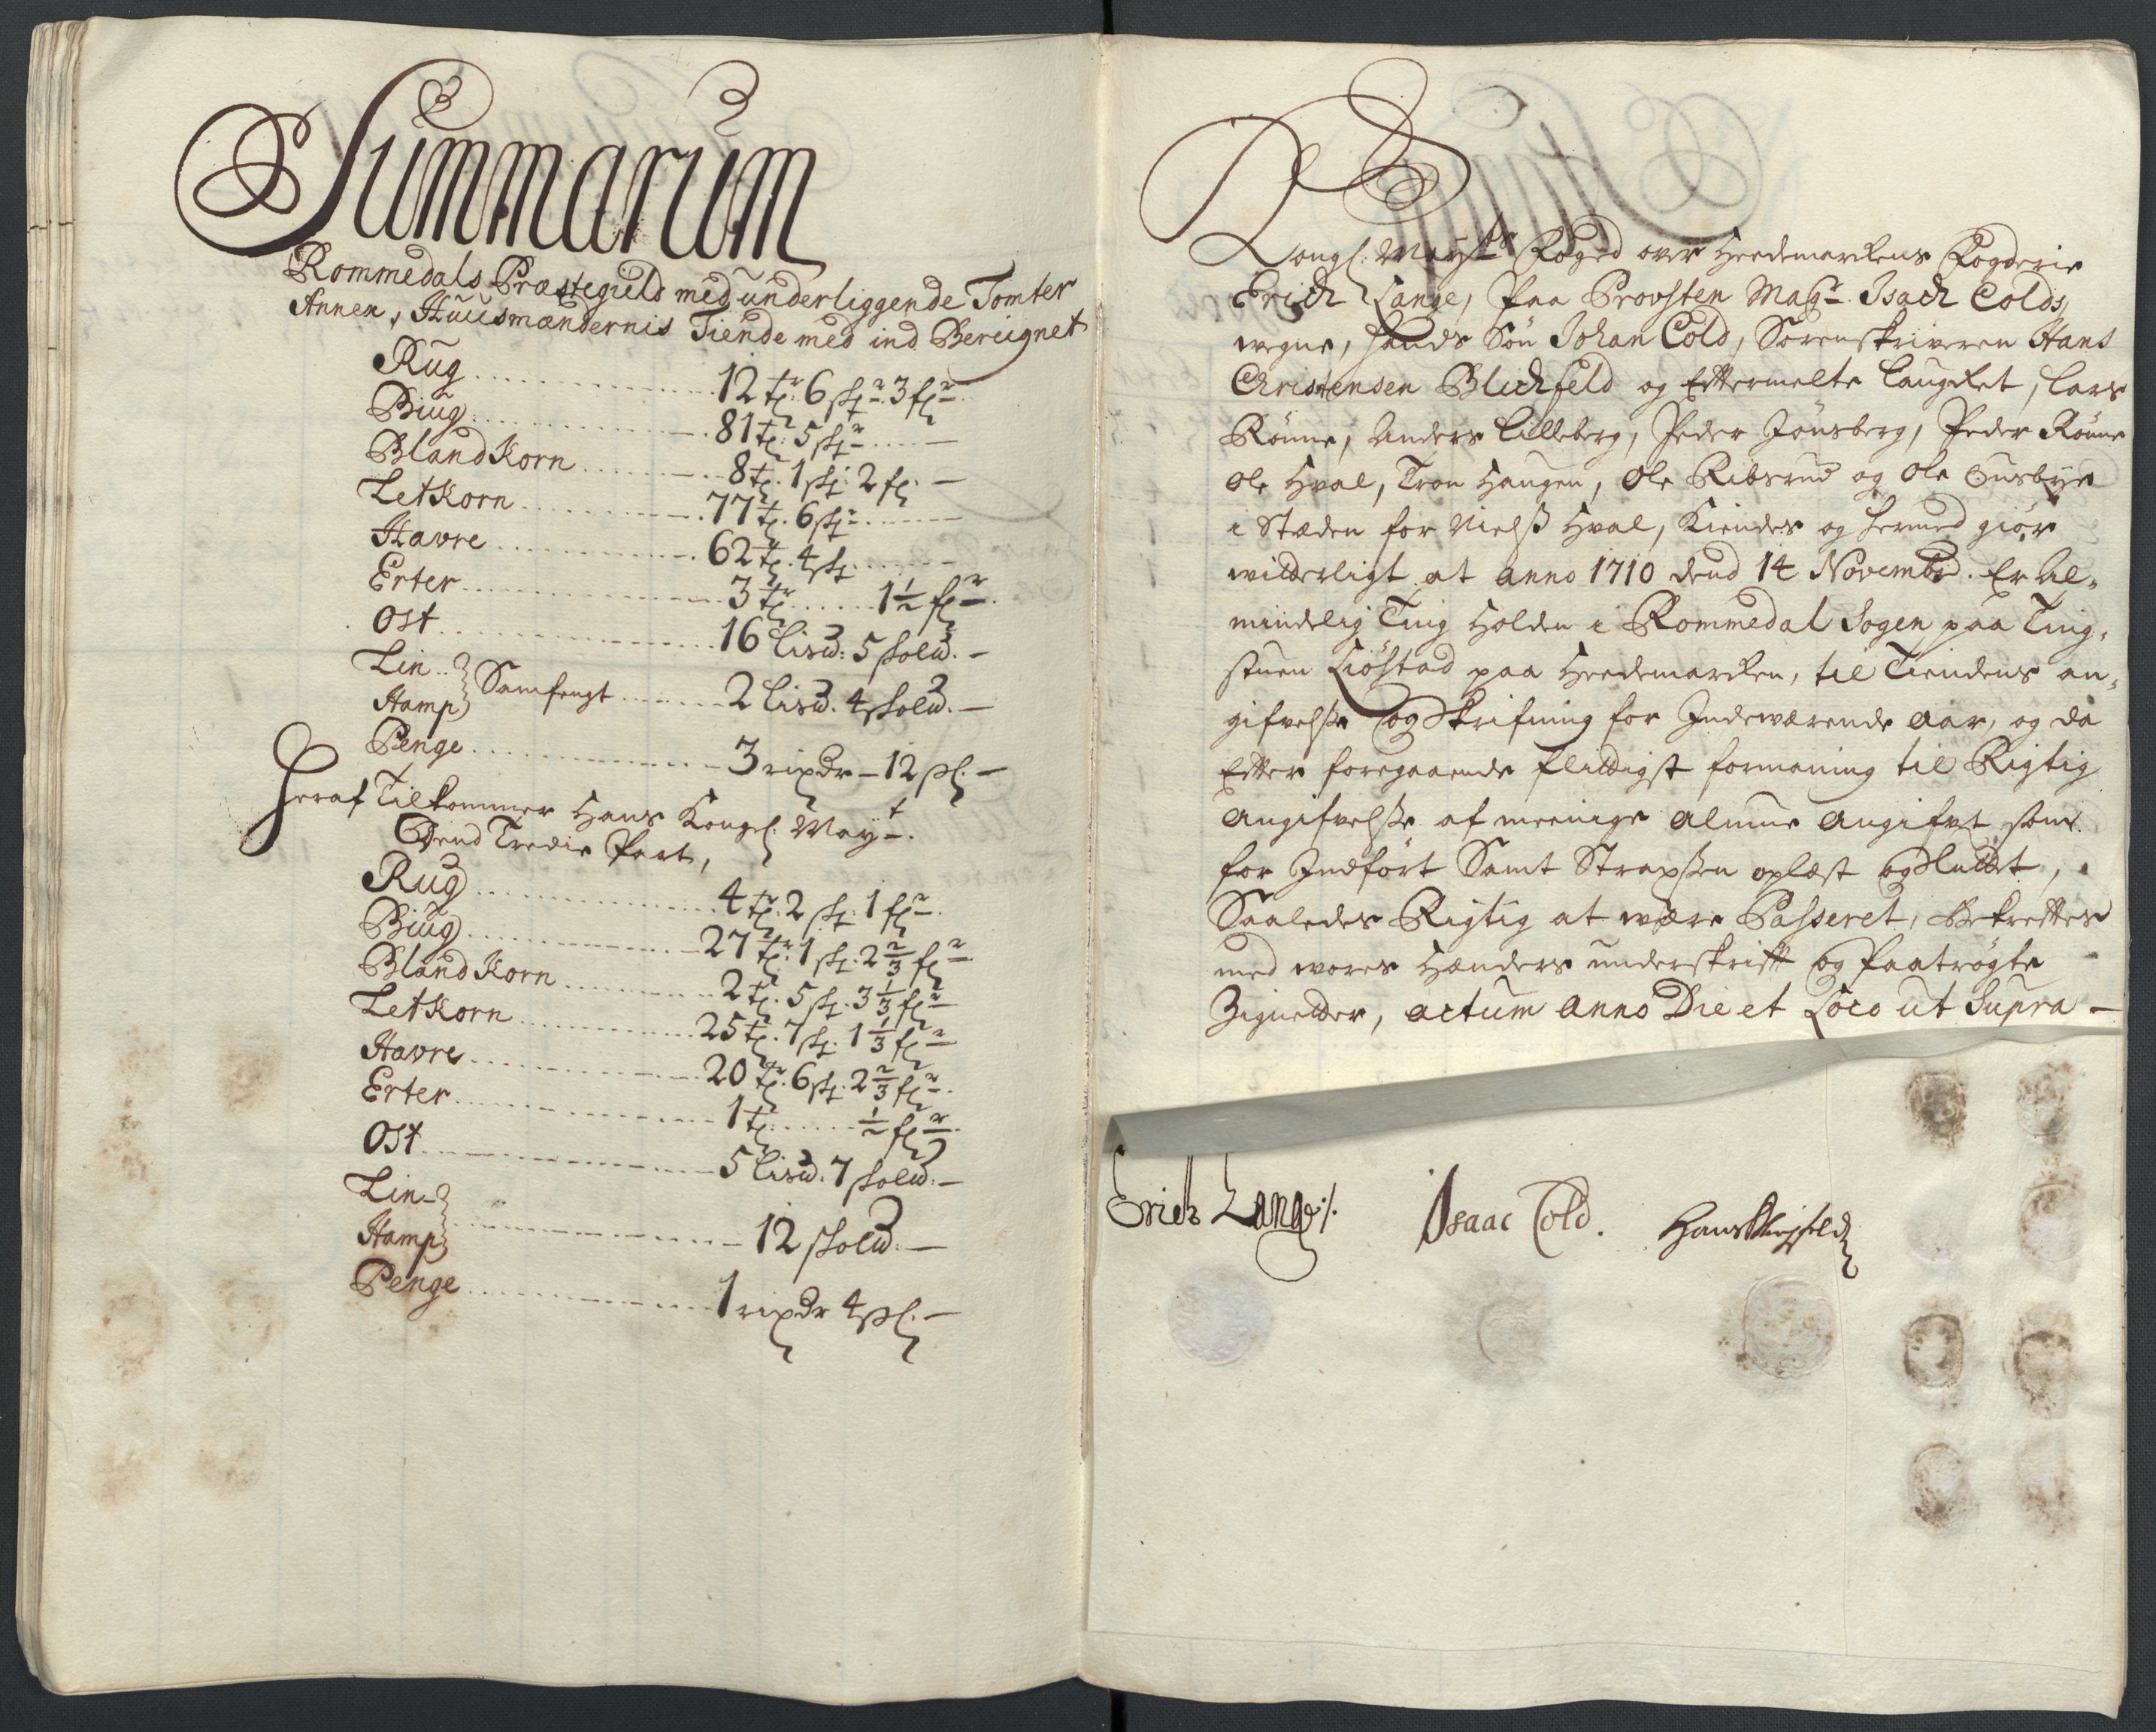 Summarum
Rommedals Præstegield med underliggende Tomter
Annex, Huusmændernis Tiende med ind Bereignet
Rug 12 tr: 6 skpr 3 fr
Biug 81 tr: 5 skpr
Bland Korn 8 t. 1 skp: 2 f. —
Let Korn 77 tr. 6 skpr
Havre 62 tr. 4 skp
Erter 3 tr 1½ fr
Ost 16 Lisd: 5 skold. —
Lin
Hamp } Samfengt 2 Lisd. 4 skold. —
Penge 3 rixdr – 12 sk. —
Heraf Tilkommer Hans Kongel: Mayt.
Dend Tredie Part,
Rug 4 tr. 2 skp: 1 fr.
Biug 27 tr. 1 skp. 2⅔ fr
Bland Korn 2 t. 5 skp. 3⅓ fr
Let Korn 25 t. 7 skp. 1⅓ fr
Havre 20 tr. 6 skp. 2⅔ fr.
Erter 1 t. ½ fr.
Ost 5 Lisd. 7 skold. —
Lin
Hamp } 12 skold. —
Penge 1 rixdr 4 sk. —
Kongl: Mayts Foged over Heedemarkens Fogderie
Erich Lange, Paa Provsten Magr. Isach Colds
wegne, hands Søn Johan Cold, Sorenskriveren Hans
Christensen Blichfeld og Eftermelte Laugret, Lars
Rønne, Anders Lilleberg, Peder Jønsberg, Peder Rønne
Ole Hval, Tron Haugen, Ole Ribsrud og Ole Huusbye
i Stæden for Nielß Hval, Kiendes og hermed giør
witterligt at anno 1710 dend 14 Novembr. Er Al-
mindelig Ting Holden i Rommedal Sogen paa Ting-
stuen Kiøstad paa Heedemarken, til Tiendens an-
gifvelße og Skrifning for Indeværende aar, og da
Efter foregaaende flittigst formaning til Rigtig
Angifvelße af meenige Almue Angifvet som
for Indført Samt Strapßen oplæst og sluttet,
Saaledes Rigtig at wære Passeret, Bekreftes
med wores Hænders underskrift og Paatrøgte
Zignetter, actum Anno Die et Loco ut Supra –
Erich Lange ./.
Isaac Cold.
Hans Blichfeld